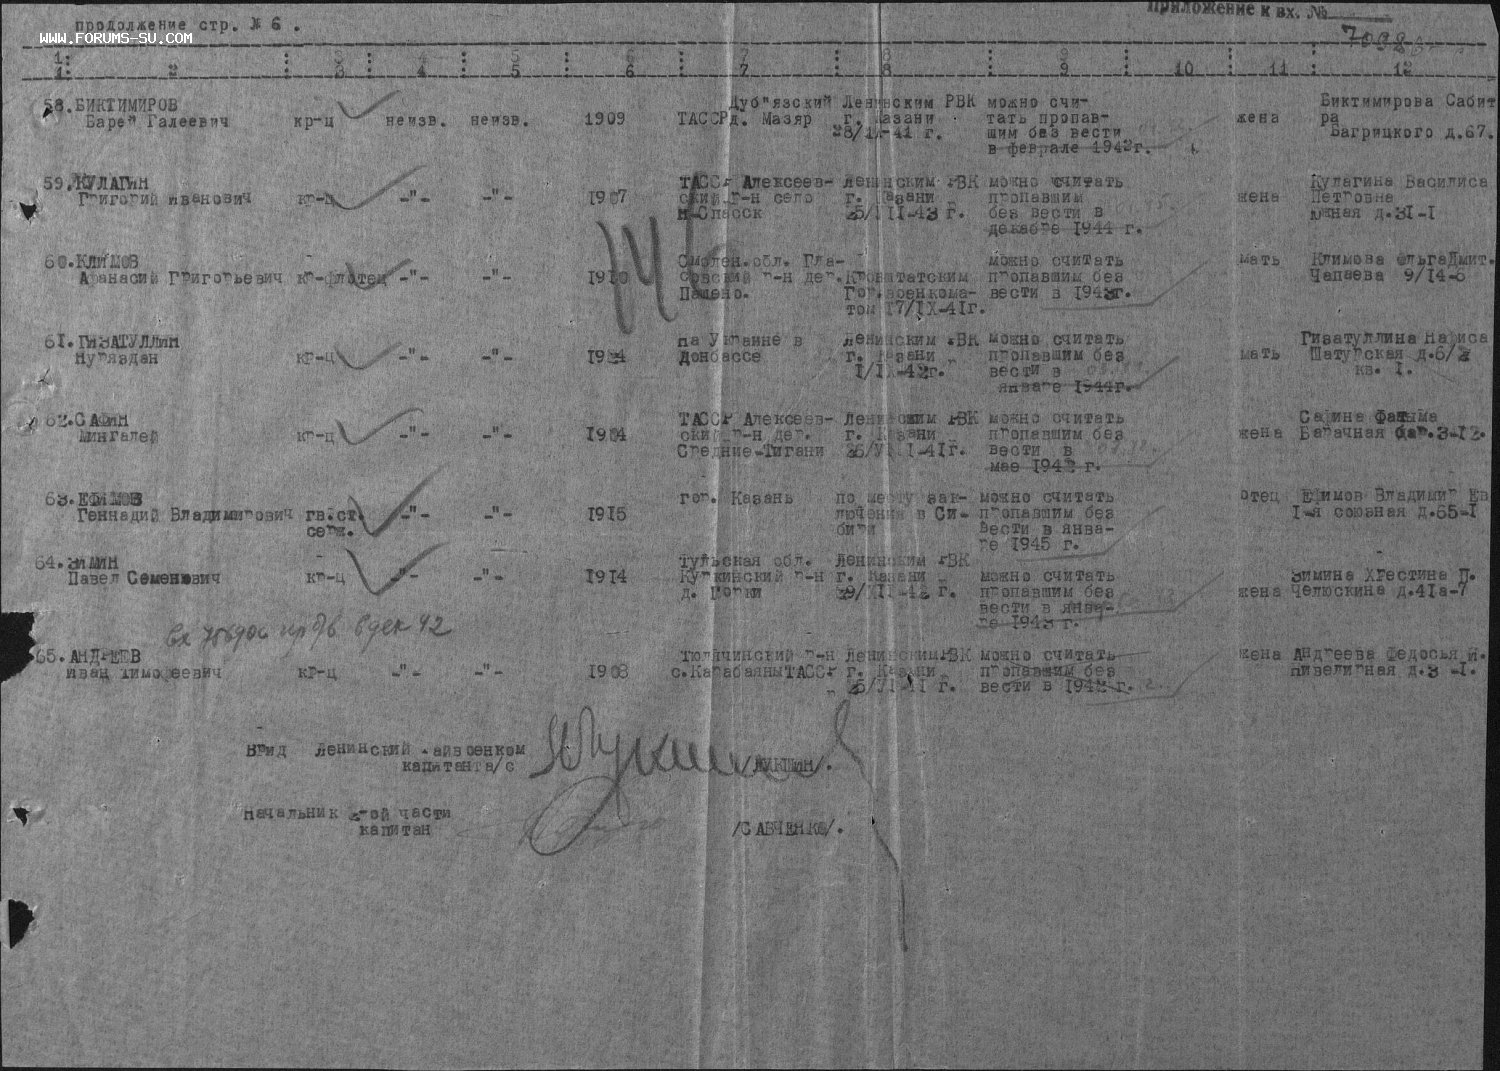 продолжение стр. № 6 .
Приложение к вх. №
WWW.FORUMS-SU.COM
1 2 3 4 5 6 7 8 9 10 11 12
58. БИКТИМИРОВ Дуб"язский Ленинским РВК можно счи- Биктимирова Сабит
Барей Галеевич кр-ц неизв. неизв. 1909 ТАССР д. Мазяр г. Казани тать пропав- жена ра
28/IX-41 г. шим без вести Багрицкого д.67.
в феврале 1942г.
59. КУЛАГИН ТАССР Алексеев- Ленинским РВК можно считать Кулагина Василиса
Григорий Иванович кр-ц -"- -"- 1907 ский р-н село г. Казани пропавшим жена Петровна
Н-Спасск 25/III-43 г. без вести в Южная д.31-1
декабре 1944 г.
60. КЛИМОВ Смолен.обл. Гла- можно считать мать Климова Ольга Дмит.
Афанасий Григорьевич кр-флотец -"- -"- 1910 совский р-н дер. Кронштатским пропавшим без Чапаева 9/14-6
Пащено. Гор.военкома- вести в 1943г.
том 17/IX-41г.
61. ГИЗАТУЛЛИН на Украине в Ленинским РВК можно считать Гизатуллина Нариса
Нурявдан кр-ц -"- -"- 1924 Донбассе г. Казани пропавшим без мать Шатурская д.6/2
1/IX-42г. вести в кв. 1.
январе 1944г.
62. САФИН ТАССР Алексеев- Ленинским РВК можно считать Сафина Фатыма
Мингалей кр-ц -"- -"- 1904 ский р-н дер. г. Казани пропавшим без жена Барачная бар.3-12.
Средние-Тигани 26/VIII-41г. вести в
мае 1942 г.
63. ЕФИМОВ гор. Казань по месту зак- можно считать отец Ефимов Владимир Ев
Геннадий Владимирович гв.ст. -"- -"- 1915 лючения в Си- пропавшим без 1-я союзная д.55-1
серж. бири вести в янва-
ре 1945 г.
64. ЗИМИН Тульская обл. Ленинским РВК
Павел Семенович кр-ц -"- -"- 1914 Куркинский р-н г. Казани можно считать Зимина Христина П.
д. Горки 29/XII-42 г. пропавшим без жена Челюскина д.41а-7
вести в янва-
ре 1943 г.
в дек 42
65. АНДРЕЕВ Тюлячинский р-н Ленинским РВК можно считать жена Андреева Федосья И.
Иван Тимофеевич кр-ц -"- -"- 1903 с.Карабаяны ТАССР г. Казани пропавшим без Нивелирная д.3 -1.
25/VI-41 г. вести в 1942 г.
Врид Ленинский Райвоенком
капитан а/с /ЛУКШИН/.
Начальник 2-ой части
капитан /САВЧЕНКО/.